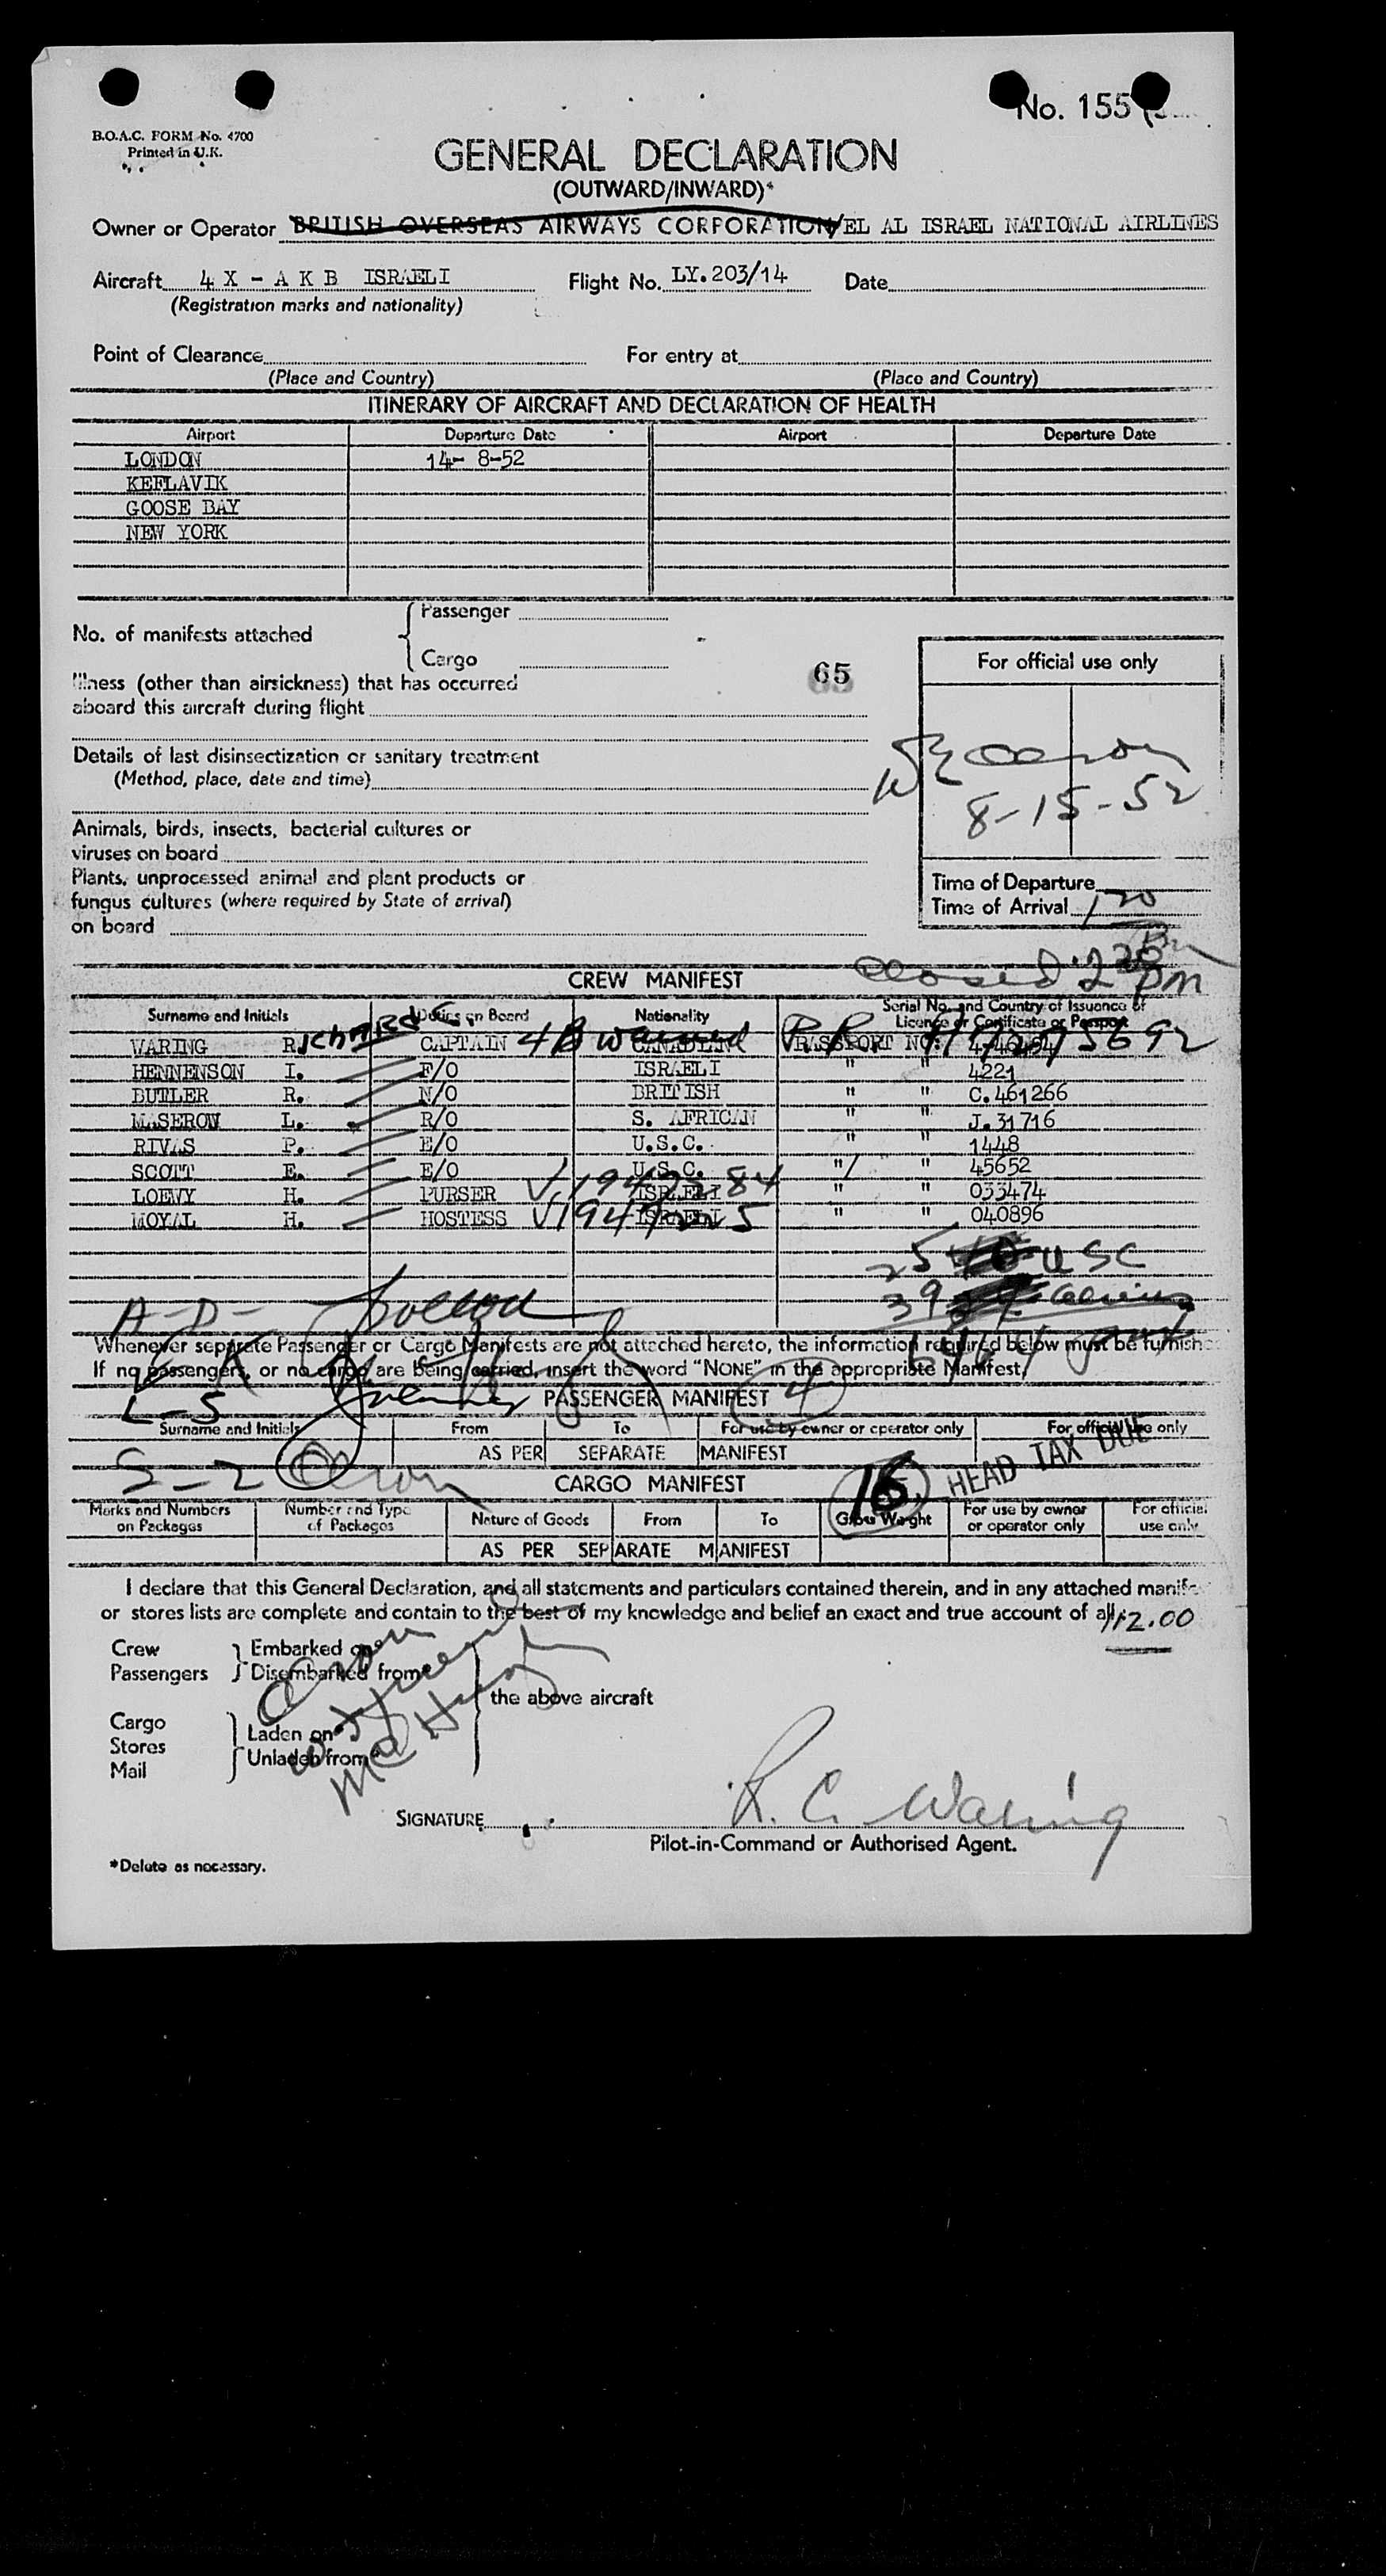 No. 155
B.O.A.C. FORM No. 4700
Printed in U.K.
GENERAL DECLARATION
(OUTWARD/INWARD)*
Owner or Operator BRITISH OVERSEAS AIRWAYS CORPORATION/EL AL ISRAEL NATIONAL AIRLINES
Aircraft 4 X - A K B ISRAELI Flight No. LY.203/14 Date
(Registration marks and nationality)
Point of Clearance For entry at
(Place and Country) (Place and Country)
ITINERARY OF AIRCRAFT AND DECLARATION OF HEALTH
Airport Departure Date Airport Departure Date
LONDON 14- 8-52
KEFLAVIK
GOOSE BAY
NEW YORK
Passenger
No. of manifests attached
Cargo
65
For official use only
Illness (other than airsickness) that has occurred
aboard this aircraft during flight
Details of last disinsectization or sanitary treatment
(Method, place, date and time)
8-15-52
Animals, birds, insects, bacterial cultures or
viruses on board
Plants, unprocessed animal and plant products or
fungus cultures (where required by State of arrival)
on board
Time of Departure
Time of Arrival 1 20
Pm
closed 2 20 pm
CREW MANIFEST
Surname and Initials Duties on Board Nationality Serial No. and Country of Issuance of
Licence or Certificate or Passport
WARING RICHARD C. CAPTAIN 4B Waived CANADIAN PASSPORT NO.
HENNENSON I. F/O ISRAELI " " 4221
BUTLER R. N/O BRITISH " " C.461266
MASEROW L. R/O S. AFRICAN " " J.31716
RIVAS P. E/O U.S.C. " " 1448
SCOTT E. E/O U.S.C. " " 45652
LOEWY H. PURSER ISRAELI " " 033474
MOYAL H. HOSTESS ISRAELI " " 040896
25 USC
39 aliens
A-D-
Whenever separate Passenger or Cargo Manifests are not attached hereto, the information required below must be furnish
If no passengers, or no cargo, are being carried, insert the word "NONE" in the appropriate Manifest,
L-S
PASSENGER MANIFEST 4
Surname and Initials From To For use by owner or operator only For official use only
AS PER SEPARATE MANIFEST
S-Z
CARGO MANIFEST
HEAD TAX DUE
Marks and Numbers on Packages Number and Type of Packages Nature of Goods From To Gross Weight For use by owner or operator only For official use only
AS PER SEPARATE MANIFEST
I declare that this General Declaration, and all statements and particulars contained therein, and in any attached manife
or stores lists are complete and contain to the best of my knowledge and belief an exact and true account of all
112.00
Crew Embarked on*
Passengers Disembarked from*
the above aircraft
Cargo
Laden on*
Stores
Unladen from*
Mail
SIGNATURE R. C. Waring
Pilot-in-Command or Authorised Agent.
*Delete as necessary.